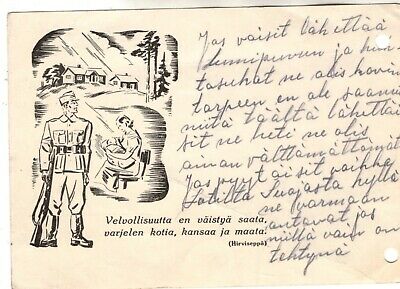 Velvollisuutta en väistyä saata,
varjelen kotia, kansaa ja maata.
(Hirviseppä)
Jos väisit lähettää
lumipuvun ja han-
tasuhat ne olis kovin
tarpeen en ole saanu
niitä täältä lähettäi
sit ne heti ne olis
aivan välttämättömät
Jos pyytäisit vaikka
Suojasta kyllä
ne varmaan
antavat jos
niillä vain on
tehtynä